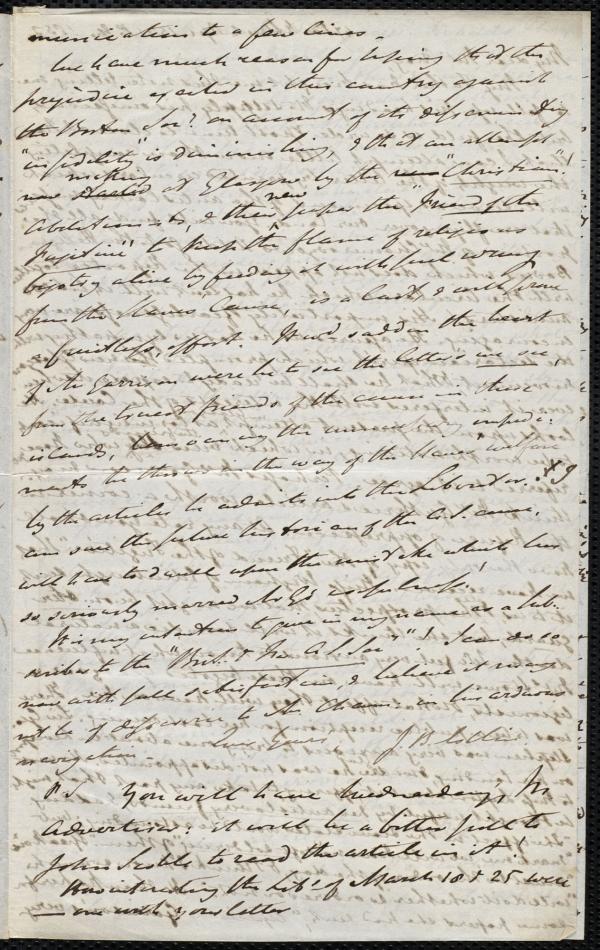 munication to a few lines.
We have much reason for hoping that the
prejudice excited in this country against
the Boston Soc? on account of its disseminating
"infidelity" is diminishing, & that an attempt
now making at Glasgow by the "Christian"!
Abolitionists, & their new paper the "Friend of the
Fugitive" to keep the flame of religious
bigotry alive by feeding it with fuel wrung
from the Slaves' Cause, is a last & will prove
a fruitless, effort. It wd sadden the heart
of Mr Garrison were he to see the letters we see,
from the truest friends of the cause in these
islands, the unnecessary impedi-
ments he throws in the way of the Slaves' welfare
by the articles he admits into the Liberator. & I
am sure the future historian of the A.S. cause,
will have to dwell upon the mistake which has
so seriously marred Mr G's usefulness!
It is my intention to give in my name as a sub-
scriber to the "Brit. & For. A. S. Soc"! I can do so
now with full satisfaction, & believe it may
not be of disservice to Mr Chamer in his arduous
navigation. Ever Yours, J. B. Estlin
P.S. You will have Wednesday's Mg
Advertiser: it will be a bitter pill to
John Scoble to read the article in it!
How interesting the Lib's of March 18 & 25 were
with your letter